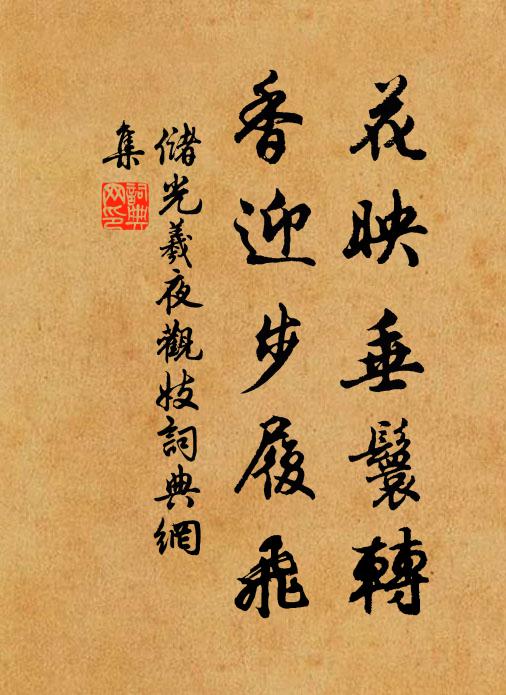 花映垂鬟轉
香迎步履飛
儲光羲夜觀妓詞典網
集
詞典网印